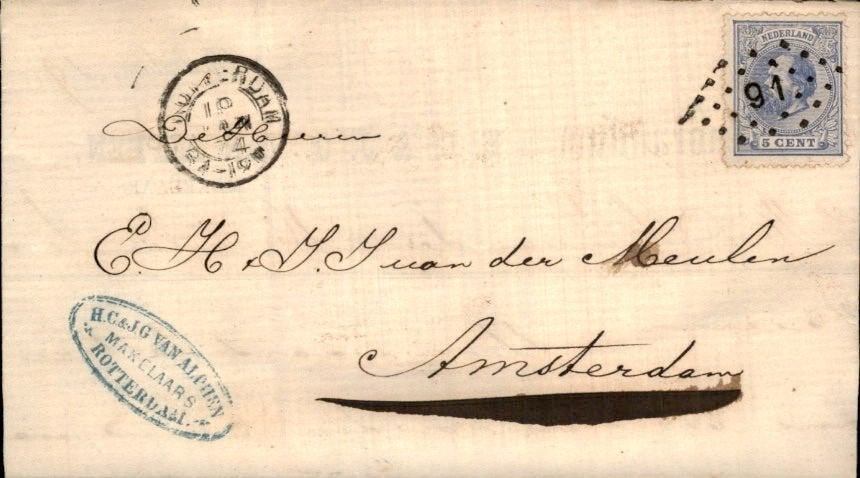 NEDERLAND
91
5 CENT
ROTTERDAM
De Heeren
E. H. & J. J van der Meulen
Amsterdam
H.C.&J.G VAN ALPHEN
MAKELAARS
ROTTERDAM.